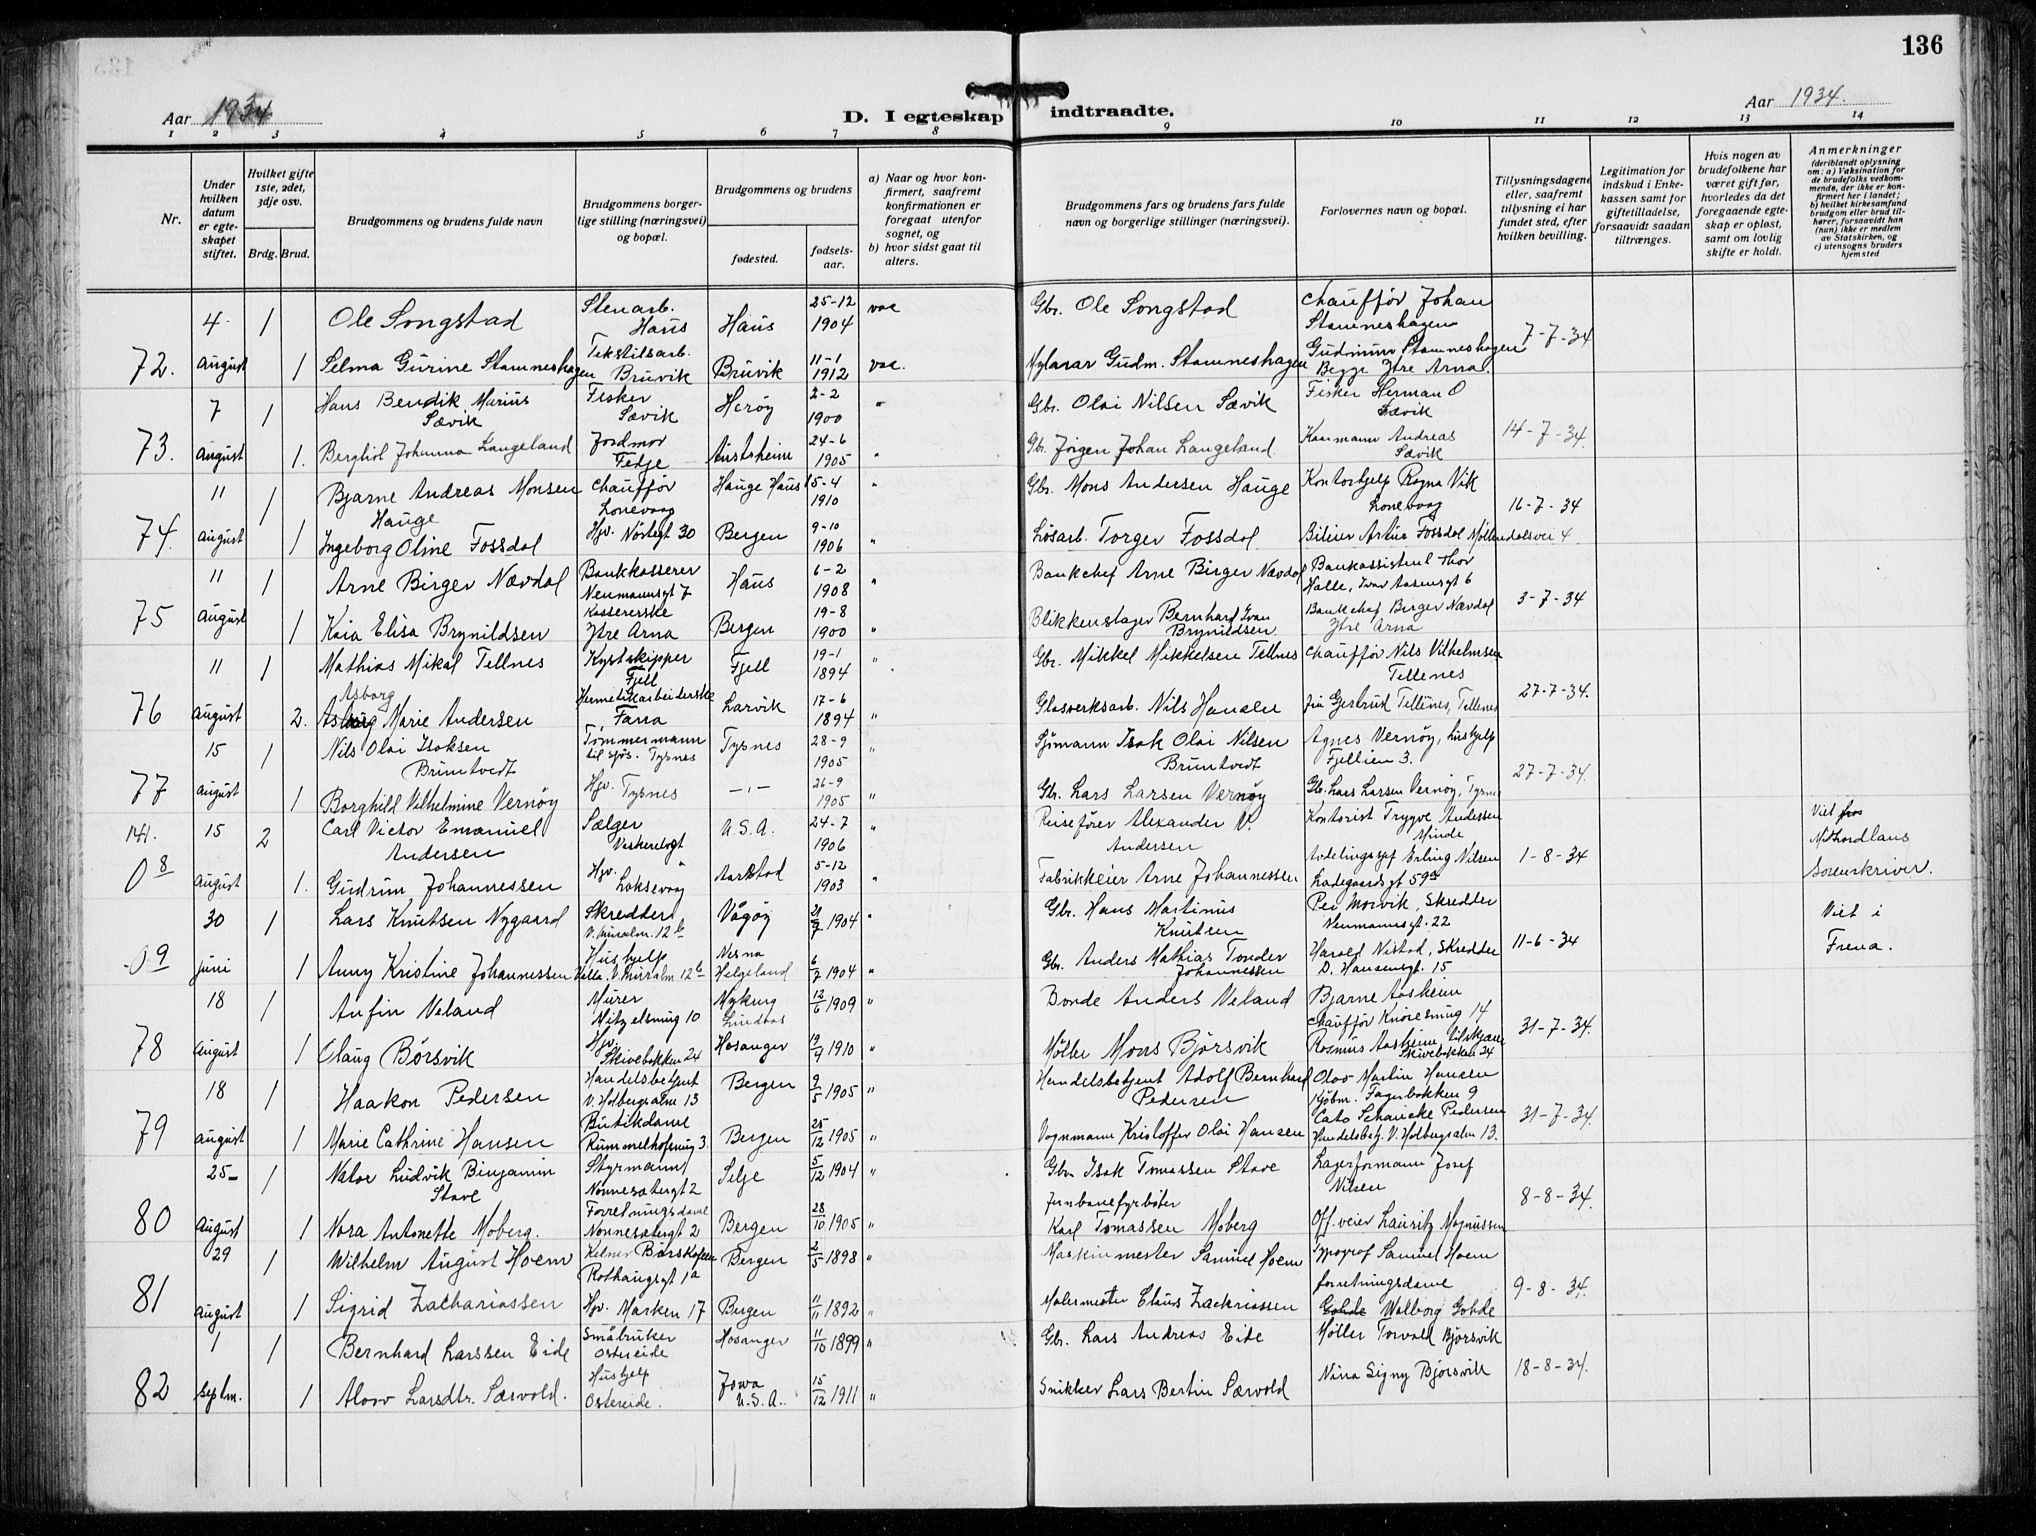 136
Aar 1934
D. I egteskap indtraadte.
Aar 1934.
1 2 3 4 5 6 7 8 9 10 11 12 13 14
Nr.
Under hvilken datum er egteskapet stiftet.
Hvilket gifte 1ste, 2det, 3dje osv.
Brdg. Brud.
Brudgommens og brudens fulde navn
Brudgommens borgerlige stilling (næringsvei) og bopæl.
Brudgommens og brudens
fødested.
fødselsaar.
a) Naar og hvor konfirmert, saafremt konfirmationen er foregaat utenfor sognet, og
b) hvor sidst gaat til alters.
Brudgommens fars og brudens fars fulde navn og borgerlige stillinger (næringsvei).
Forlovernes navn og bopæl.
Tillysningsdagene eller, saafremt tillysning ei har fundet sted, efter hvilken bevilling.
Legitimation for indskud i Enkekassen samt for giftetilladelse, forsaavidt saadan tiltrænges.
Hvis nogen av brudefolkene har været gift før, hvorledes da det foregaaende egteskap er opløst, samt om lovlig skifte er holdt.
Anmerkninger
(deriblandt oplysning om: a) Vaksination for de brudefolks vedkommende, der ikke er konfirmert her i landet; b) hvilket kirkesamfund brudgom eller brud tilhører, forsaavidt han (hun) ikke er medlem av Statskirken, og c) utensogns bruders hjemsted
4 1 Ole Songstad Stenarb. Haus Haus 25-12 1904 vac Gbr. Ole Songstad Chauffør Johan Stamneshagen 7-7-34
72. August 1 Selma Gurine Stamneshagen Tekstilarb. Bruvik Bruvik 11-1 1912 vac. Gudm. Stamneshagen Stamneshagen Begge Ytre Arna.
7 1 Hans Bendik Marius Sævik Fisker Sævik Herøy 2-2 1900 " Gbr. Olai Nilsen Sævik Fisker Herman O Sævik
73. August 1. Johanna Langeland Jordmor Fedje Austrheim 24-6 1905 " Gb. Jørgen Johan Langeland Andreas Sævik 14-7-34.
11 1 Bjarne Andreas Monsen Hauge Chauffør Lonevaag Hauge Haus 15-4 1910 " Gbr. Mons Andersen Hauge Kontorhjelp Ragna Vik Lonevaag 16-7-34
74. August 1 Ingeborg Oline Fossdal Hjv. 30 Bergen 9-10 1906 " Løsarb. Torger Fossdal Bileier Artur Fossdal Møllendalsvei 4
11 1 Arne Birger Nævdal Bankkasserer Neumannsgt 7 Haus 6-2 1908 " Bankchef Arne Birger Nævdal Bankassistent Thor Halle, Ivar Aasensgt 6
75 August 1 Kaia Elisa Brynildsen Kassererske Ytre Arna Bergen 19-8 1900 " Blikkenslager Bernhard Ivan Brynildsen Bankchef Birger Nævdal Ytre Arna 3-7-34
11 1 Mathias Mikal Tellnes Kystskipper Fjell Fjell 19-1 1894 " Gbr. Mikkel Mikkelsen Tellnes Chauffør Nils Vilhelmsen Tellenes
76 August 2. Asborg Marie Andersen Hermetikarbeiderske Fana Larvik 17-6 1894 " Glasverksarb. Nils Hansen fru Gjertrud Tellenes, Tellenes 27-7-34.
15 1 Nils Olai Isaksen Bruntvedt Tømmermann til sjøs. Tysnes Tysnes 28-9 1905 " Sjømann Isak Olai Nilsen Bruntvedt Agnes Vernøy, hushjelp Fjellien 3.
77 August 1 Borghild Vilhelmine Vernøy Hjv. Tysnes -"- 26-9 1905 " Gbr. Lars Larsen Vernøy Gb. Lars Larsen Vernøy, Tysnes 27-7-34.
141. 15 2 Carl Victor Emanuel Andersen Sælger U.S.A. 24-7 1906 " Reisefører Alexander V. Andersen Kontorist Trygve Andersen Minde
08 August 1. Gudrun Johannessen Hjv. Loksevaag Aarstad 5-12 1903 " Fabrikkeier Arne Johannessen Avdelingssjef Erling Nilsen Ladegaardsgt 59a 1-8-34 Viet Sorenskriver.
30 1 Lars Knutsen Nygaard Skredder Vågøy 21/7 1904 " Gbr. Hans Martinus Knutsen Per Morvik, Skredder Neumannsgt. 22 Viet i
09 juni 1 Anny Kristine Johannessen Hushjelp Nesna Helgeland 6/7 1904 " Gbr. Anders Mathias Tønder Johannessen Harald Nistad, Skredder D. Hansensgt. 15 11-6-34 Frena.
18 1 Anfin Veland Murer 10 Myking Lindaas 12/6 1909 " Bonde Anders Veland Bjarne Aasheim Chauffør Knøsesmug 14
78 August 1 Olaug Børsvik Hjv. Skivebakken 24 Hosanger 19/9 1910 " Møller Mons Bjørsvik Rasmus Aasheim Skivebakken 24 31-7-34.
18 1 Haakon Pedersen Handelsbetjent V. Holbergsalm 13 Bergen 9/5 1905 " Handelsbetjent Adolf Bernhard Pedersen Olav Martin Hansen Kjøbm. Fagerbakken 9
79 August 1 Marie Cathrine Hansen Butikdame Rummelhofsmug 3. Bergen 25/12 1905 " Vognmann Kristoffer Olai Hansen Cato Schancke Pedersen Handelsbetj. V. Holbergsalm 13. 31-7-34.
25- 1 Nator Ludvik Binjamin Stave Styrmann Nonnesætergt 2 Selje 5/12 1904 " Gbr. Isak Tomassen Stave Lagerformann Josef Nilsen
80 August 1 Nora Antonette Moberg. Forretningsdame Nonnesætergt 2 Bergen 28/10 1905 " Jernbanefyrbøter Karl Tomassen Moberg Off. veier Lauritz Magnussen 8-8-34.
29 1 Wilhelm August Hoem Kelner Børskafeen Rothaugsgt 1a Bergen 2/5 1898 " Maskinmester Samuel Hoem Typograf Samuel Hoem
81 August 1 Sigrid Zachariassen Hjv. Marken 17 Bergen 11/11 1892 " Malermester Claus Zachriassen forretningsdame Walborg Gohde 9-8-34.
1 1 Bernhard Larssen Eide Småbruker Ostereide Hosanger 11/10 1899 " Gbr. Lars Andreas Eide Møller Torvald Bjørsvik
82 Septm. 1 Alvov Larsdtr. Særvold. Hushjelp Ostereide. Jowa U.S.A. 15/12 1911 " Snikker Lars Bertin Særvold Nina Signy Bjørsvik 18-8-34.